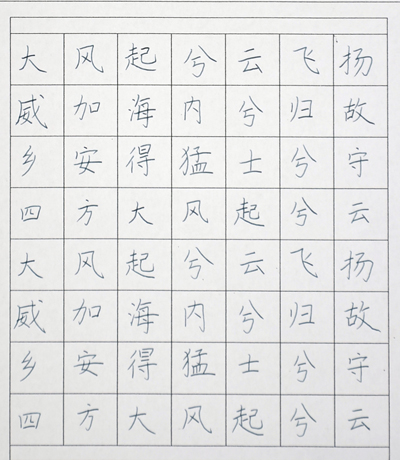 大风起兮云飞扬
威加海内兮归故
乡安得猛士兮守
四方大风起兮云
大风起兮云飞扬
威加海内兮归故
乡安得猛士兮守
四方大风起兮云